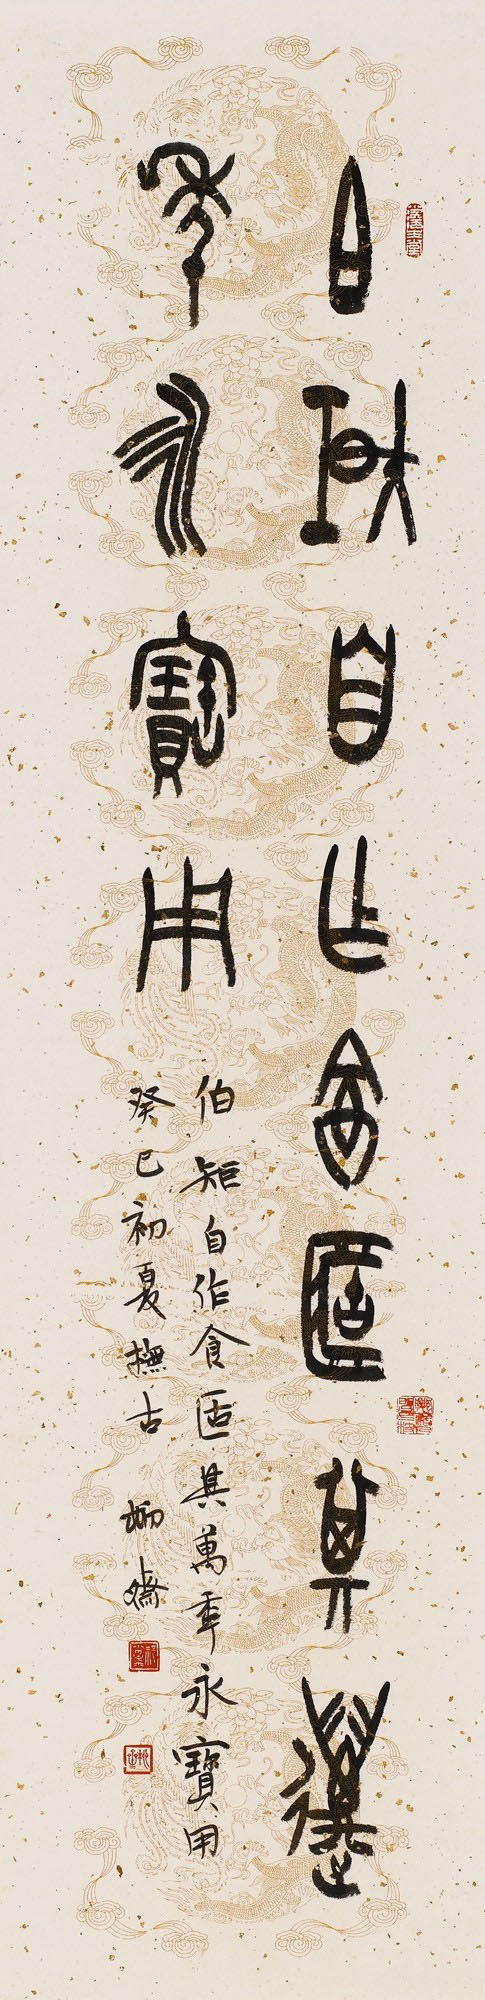 白矩自乍食匿其邁
年永寶用
伯矩自作食匿其萬年永寶用
癸巳初夏撫古